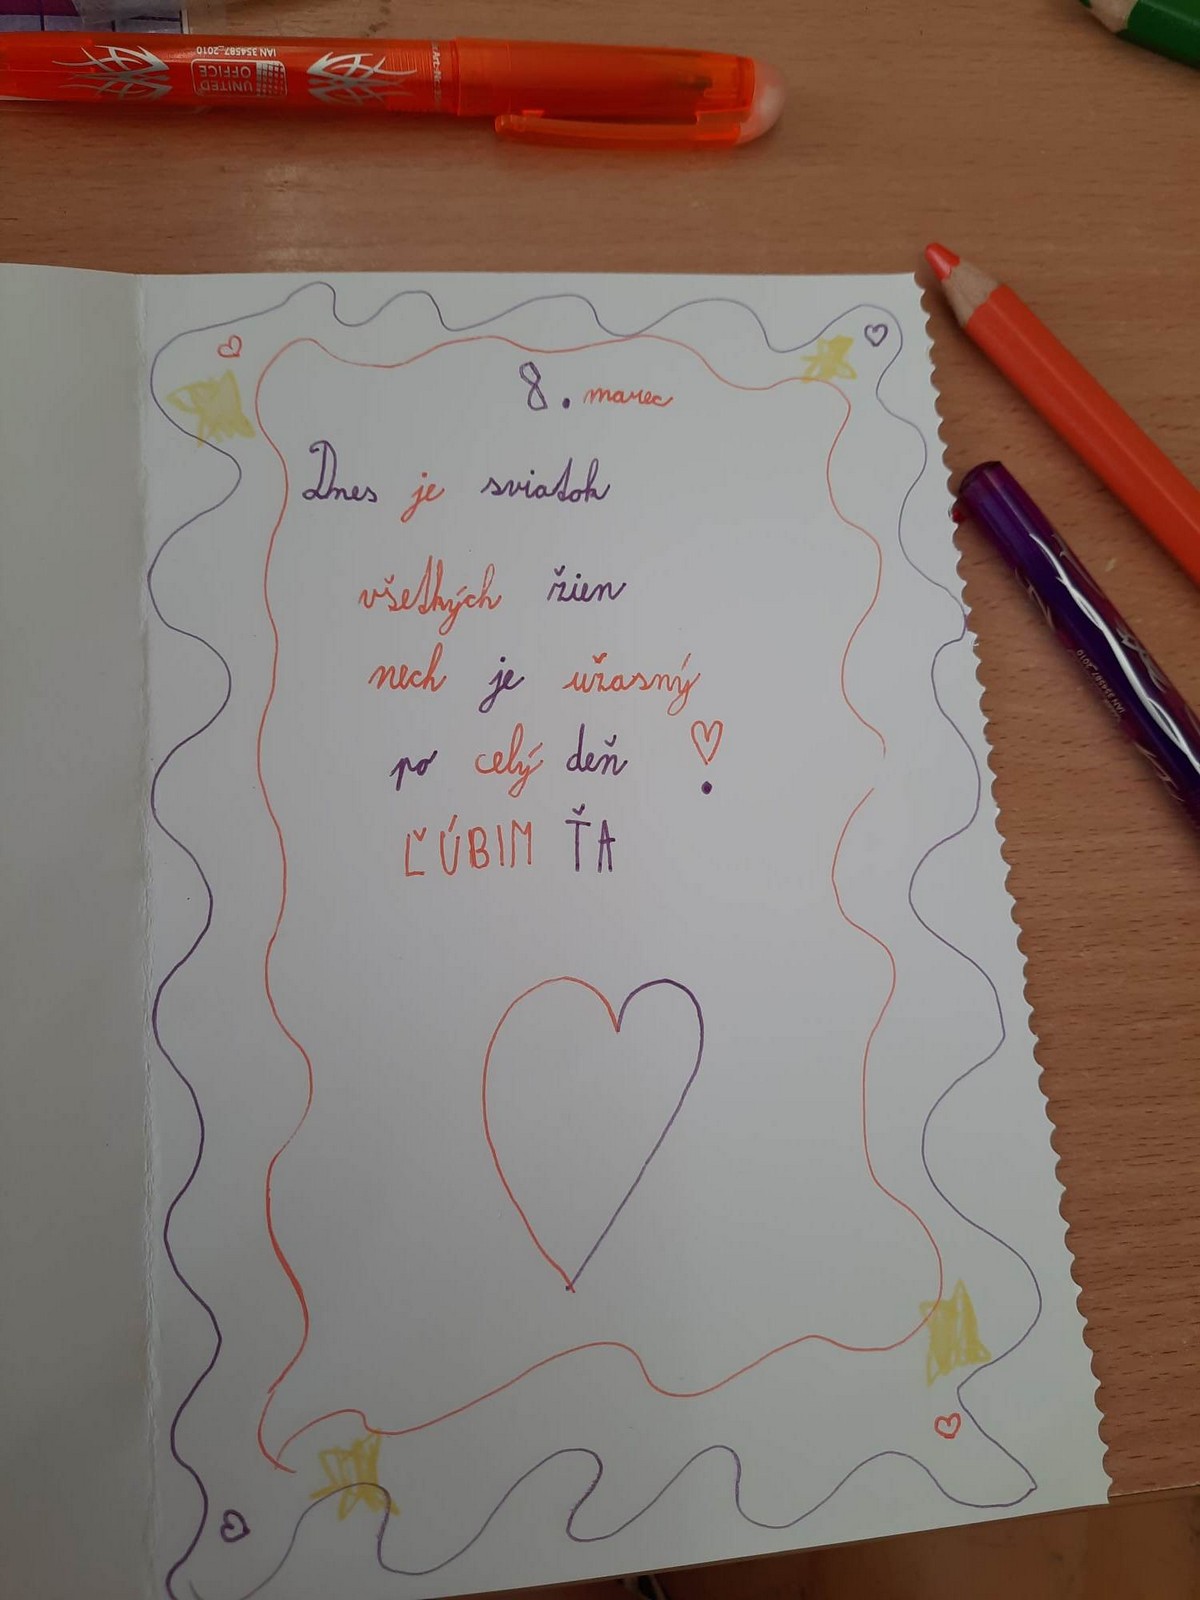 IAN 354587_2010
UNITED
OFFICE
8. marec
Dnes je sviatok
všetkých žien
nech je úžasný
po celý deň
ĽÚBIM ŤA
IAN 354587_2010